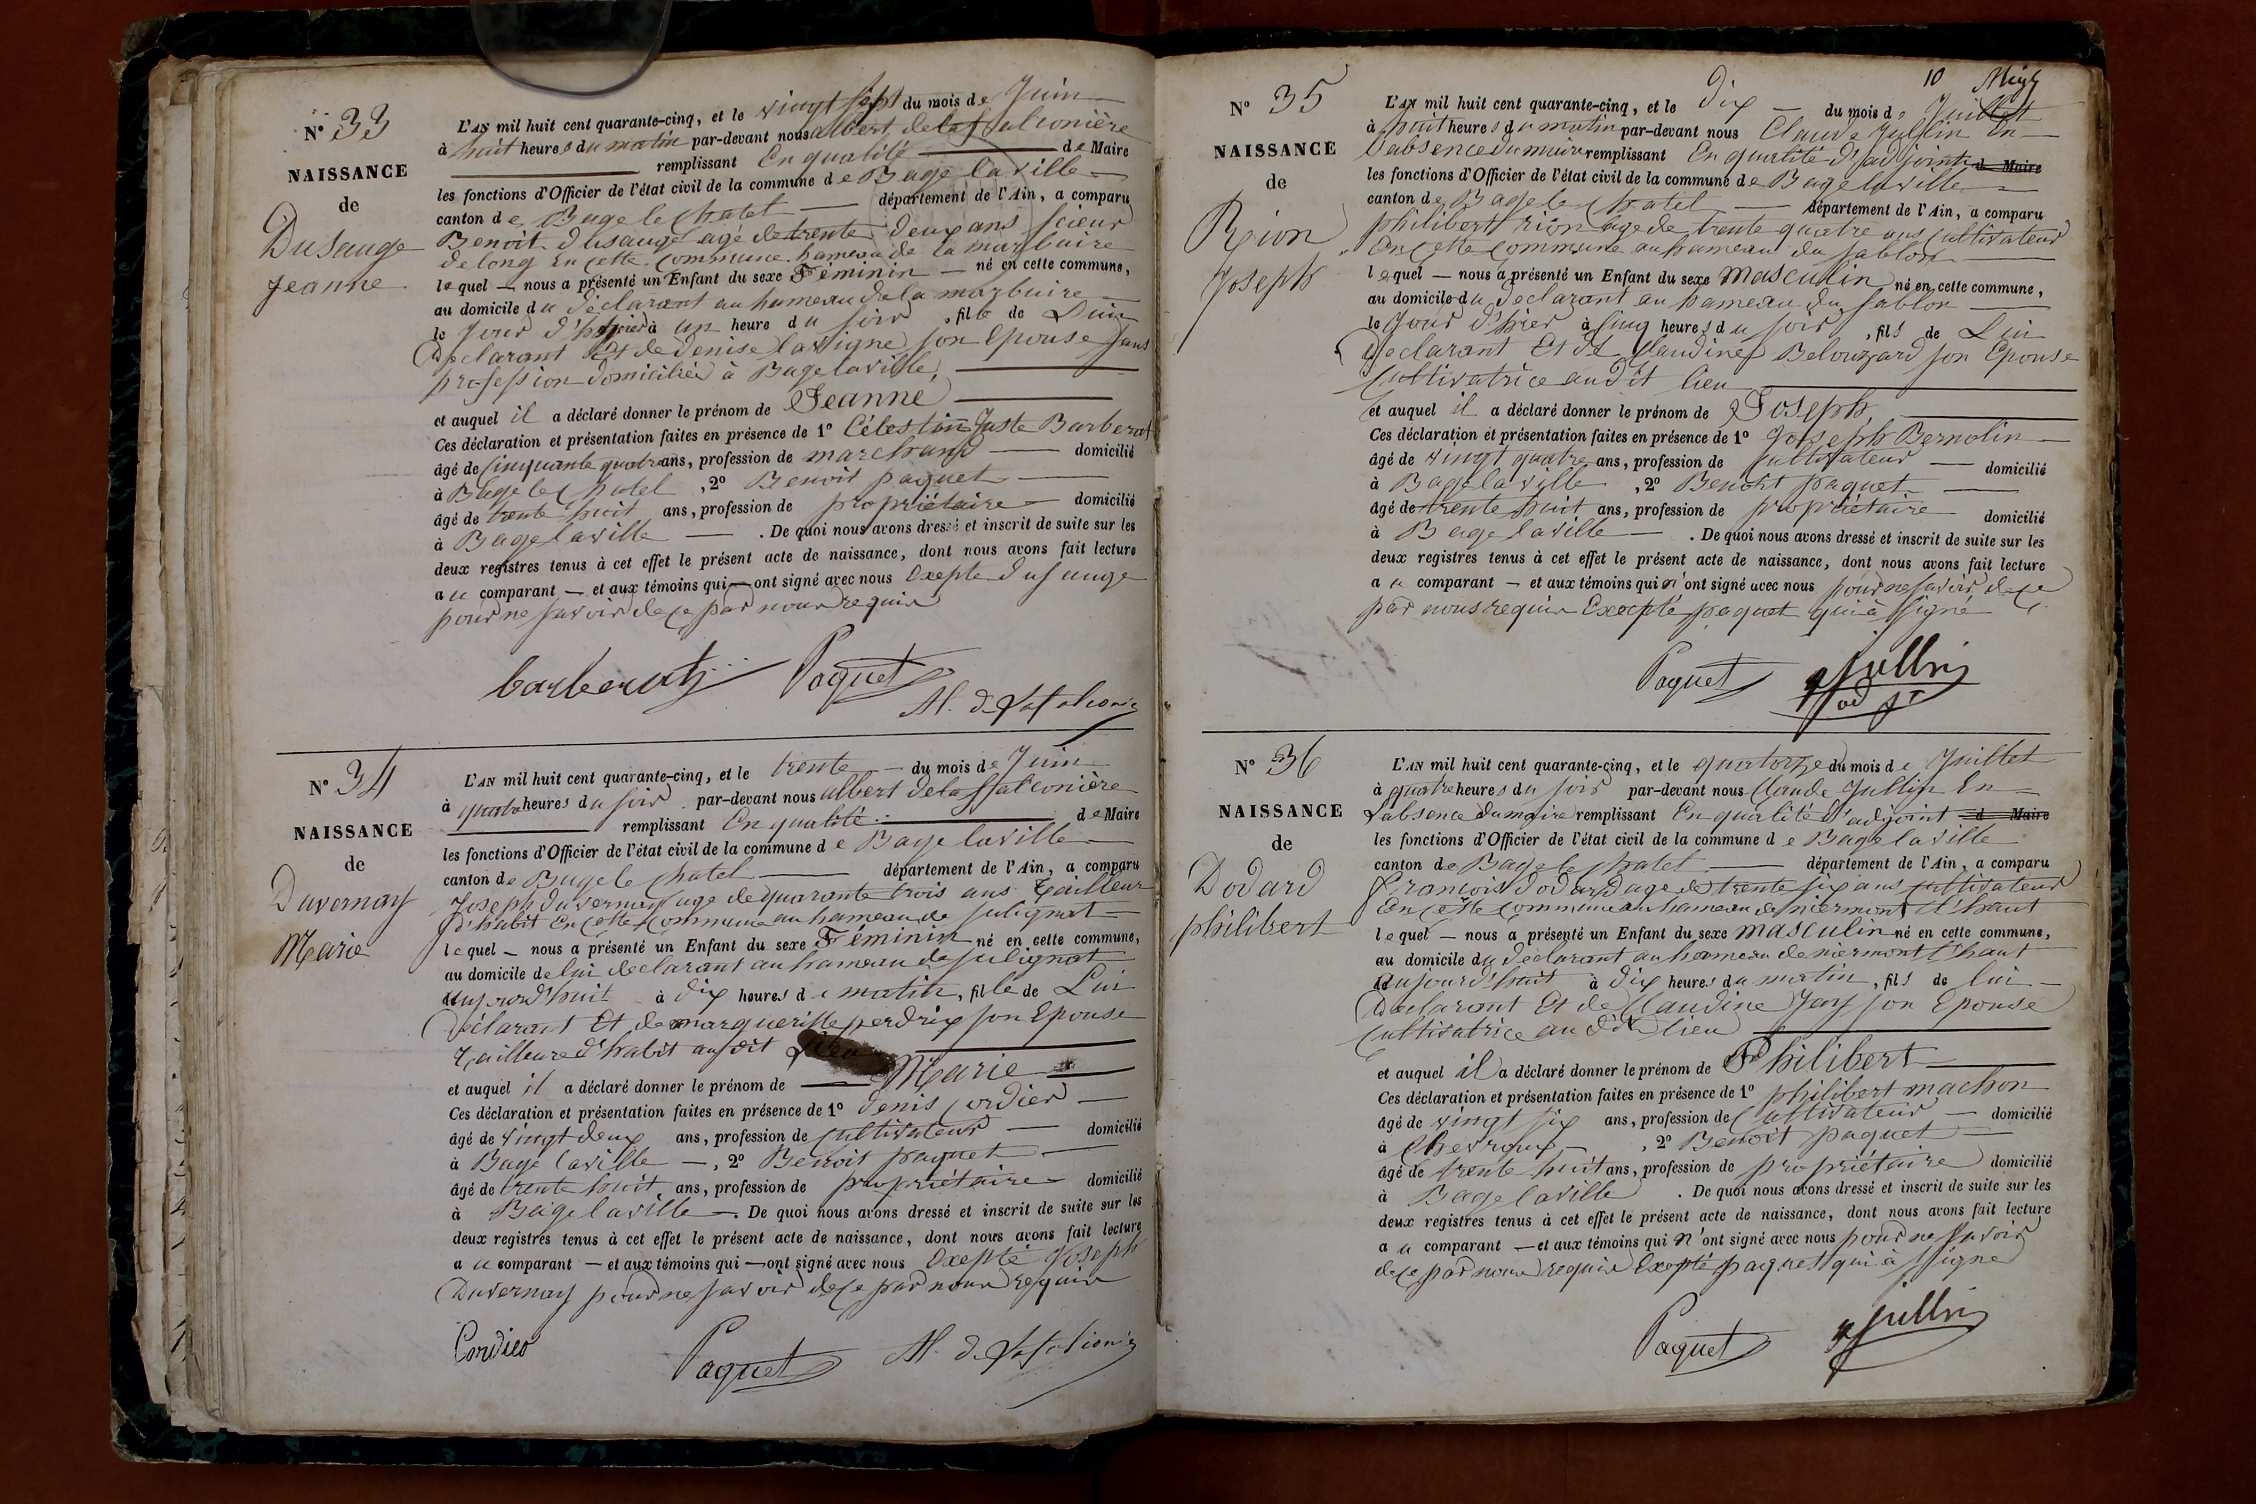 N° 33
NAISSANCE
de
Dusauge
Jeanne
L'AN mil huit cent quarante-cinq, et le vingt sept du mois de Juin
à huit heures du matin par-devant nous albert delafalconière
remplissant En qualité de Maire
les fonctions d'Officier de l'état civil de la commune de Bage laville
canton de Bage le Chatel département de l'Ain, a comparu
Benoit dusauge agé de trente deux ans scieur
de long en cette commune hameau de la marbuire
lequel — nous a présenté un Enfant du sexe Féminin — né en cette commune,
au domicile du déclarant au hameau de la marbuire
le Jour d'hier à un heure du soir, fille de Lui
Déclarant Et de denise lavigne son Epouse sans
profession domiciliée à Bage laville,
et auquel il a déclaré donner le prénom de Jeanne
Ces déclaration et présentation faites en présence de 1° Célestin Juste Barberat
âgé de Cinquante quatre ans, profession de marchand — domicilié
à Bage le Chatel, 2° Benoit paquet
âgé de trente huit ans, profession de propriétaire — domicilié
à Bage laville — . De quoi nous avons dressé et inscrit de suite sur les
deux registres tenus à cet effet le présent acte de naissance, dont nous avons fait lecture
au comparant — et aux témoins qui — ont signé avec nous Excepte dusauge
pour ne savoir de ce par nous requis
barberat Paquet Al. de Lafalconi
N° 34
NAISSANCE
de
Duvernay
Marie
L'AN mil huit cent quarante-cinq, et le trente — du mois de Juin
à quatre heures du soir par-devant nous albert delaffalconière
remplissant En qualité de Maire
les fonctions d'Officier de l'état civil de la commune de Bage laville
canton de Bage le Chatel département de l'Ain, a comparu
Joseph duvernay age de quarante trois ans tailleur
d'habit En cette commune au hameau de julignat
lequel — nous a présenté un Enfant du sexe Féminin né en cette commune,
au domicile de lui declarant au hameau de julignat
aujourd'huit à dix heures du matin, fille de Lui
Déclarant Et de margueritte perdrix son Epouse
tailleure d'habit audit Lieu
et auquel il a déclaré donner le prénom de Marie
Ces déclaration et présentation faites en présence de 1° denis Cordier
âgé de vingt deux ans, profession de cultivateur — domicilié
à Bage laville —, 2° Benoit paquet
âgé de trente huit ans, profession de propriétaire domicilié
à Bage laville —. De quoi nous avons dressé et inscrit de suite sur les
deux registres tenus à cet effet le présent acte de naissance, dont nous avons fait lecture
au comparant — et aux témoins qui — ont signé avec nous Excepté Joseph
Duvernay pour ne savoir de ce par nous requis
Cordier Paquet Al. de Lafalconi
10
N° 35
NAISSANCE
de
Rion
Joseph
L'AN mil huit cent quarante-cinq, et le dix — du mois de Juillet
à huit heures du matin par-devant nous Claude Jullin En
l'absence du maire remplissant En qualité d'adjoint d Maire
les fonctions d'Officier de l'état civil de la commune de Bage laville
canton de Bage le Chatel — département de l'Ain, a comparu
philibert rion age de trente quatre ans Cultivateur
En cette Commune au hameau du sablon
lequel — nous a présenté un Enfant du sexe Masculin né en cette commune,
au domicile du Declarant au hameau du sablon
le Jour d'hier à sinq heures du soir, fils de Lui
Déclarant Et de Claudine Belouzard son Epouse
Cultivatrice audit lieu
et auquel il a déclaré donner le prénom de Joseph
Ces déclaration et présentation faites en présence de 1° Joseph Bernolin
âgé de vingt quatre ans, profession de Cultivateur — domicilié
à Bage laville, 2° Benoit paquet
âgé de trente huit ans, profession de propriétaire domicilié
à Bage laville — . De quoi nous avons dressé et inscrit de suite sur les
deux registres tenus à cet effet le présent acte de naissance, dont nous avons fait lecture
au comparant — et aux témoins qui n'ont signé avec nous pour ne savoir de ce
par nous requis Excepté paquet qui à signé
Paquet Jullin
adjt
N° 36
NAISSANCE
de
Dodard
philibert
L'AN mil huit cent quarante-cinq, et le quatorze du mois de Juillet
à quatre heures du soir par-devant nous Claude Jullin En
L'absence du maire remplissant En qualité d'adjoint d Maire
les fonctions d'Officier de l'état civil de la commune de Bage laville
canton de Bage le Chatel — département de l'Ain, a comparu
francois dodard age de trente six ans Cultivateur
En cette Commune au hameau de niermont l'haut
lequel — nous a présenté un Enfant du sexe masculin né en cette commune,
au domicile du déclarant au hameau de niermont l'haut
aujourd'huit à dix heures du matin, fils de lui
Declarant Et de Claudine Jay son Epouse
Cultivatrice au dit lieu
et auquel il a déclaré donner le prénom de Philibert
Ces déclaration et présentation faites en présence de 1° philibert machon
âgé de vingt six ans, profession de Cultivateur — domicilié
à Chevroux —, 2° Benoit paquet
âgé de trente huit ans, profession de propriétaire domicilié
à Bage laville . De quoi nous avons dressé et inscrit de suite sur les
deux registres tenus à cet effet le présent acte de naissance, dont nous avons fait lecture
au comparant — et aux témoins qui n'ont signé avec nous pour ne savoir
de ce par nous requis Excepté paquet qui à signé
Paquet Jullin